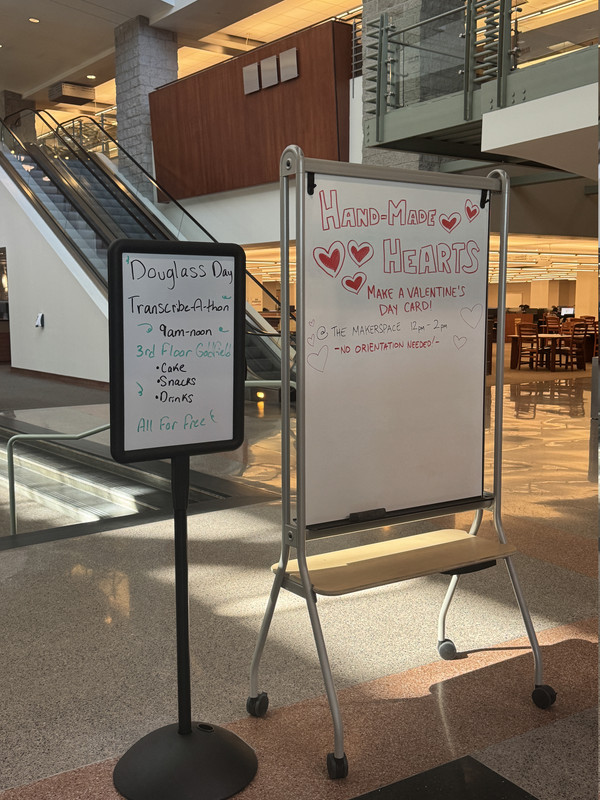 Douglass Day
Transcribe-A-thon
9am-noon
3rd Floor Godfield
•Cake
•Snacks
•Drinks
All For Free!
HAND-MADE
HEARTS
MAKE A VALENTINE'S
DAY CARD!
@ THE MAKERSPACE 12pm-2pm
-NO ORIENTATION NEEDED!-